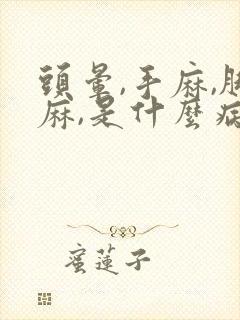 頭暈,手麻,腳
麻,是什麼病
蜜蓮子